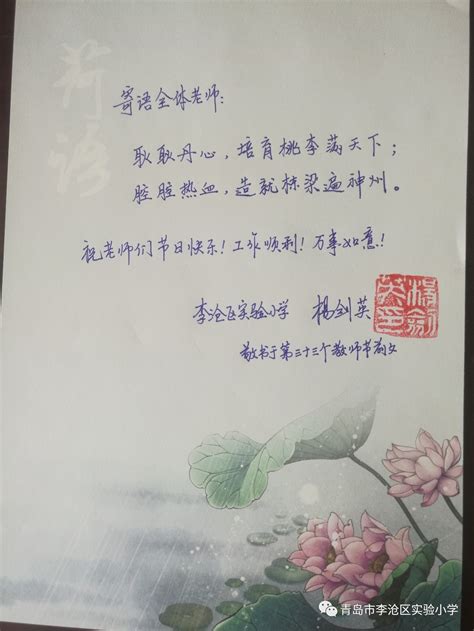 荷语
寄语全体老师：
耿耿丹心，培育桃李满天下；
腔腔热血，造就栋梁遍神州。
祝老师们节日快乐！工作顺利！万事如意！
李沧区实验小学 杨剑英
敬书于第三十三个教师节前夕
杨剑英印
青岛市李沧区实验小学